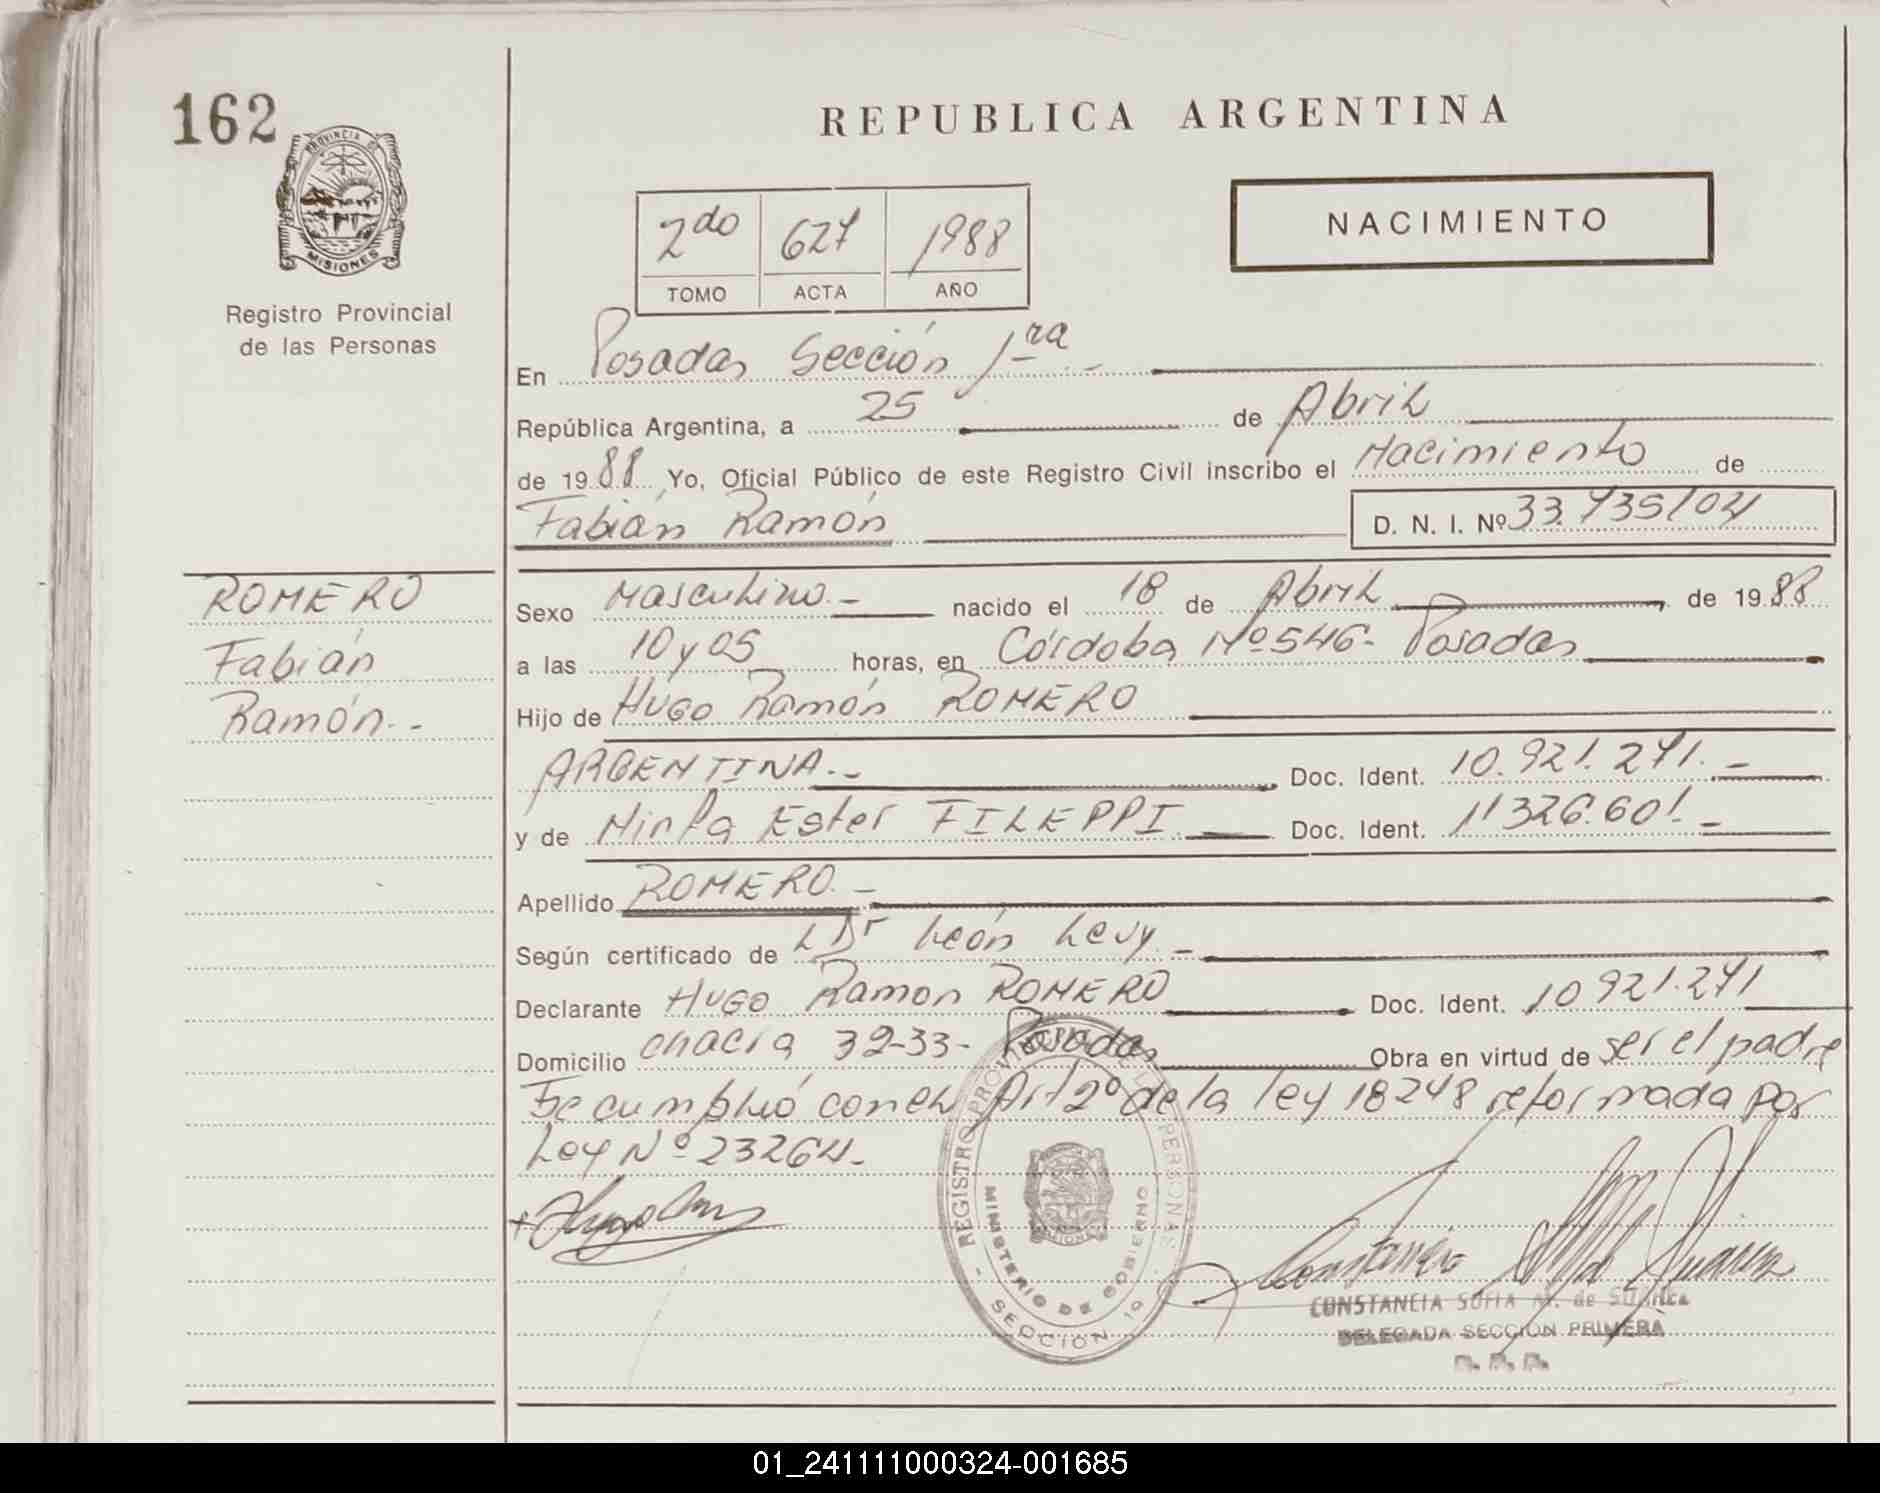 162
PROVINCIA DE
MISIONES
Registro Provincial
de las Personas
REPUBLICA ARGENTINA
2do 627 1988
TOMO ACTA AÑO
NACIMIENTO
En Posadas Sección 1ra -
República Argentina, a 25 de Abril
de 1988 Yo, Oficial Público de este Registro Civil inscribo el Nacimiento de
Fabián Ramón D. N. I. Nº 33.735104
ROMERO
Fabián
Ramón.-
Sexo Masculino.- nacido el 18 de Abril de 1988
a las 10 y 05 horas, en Córdoba Nº 546- Posadas
Hijo de Hugo Ramón ROMERO
ARGENTINA.- Doc. Ident. 10.921.271.-
y de Mirta Ester FILEPPI.- Doc. Ident. 11326.601.-
Apellido ROMERO.-
Según certificado de Dr León Levy -
Declarante Hugo Ramon ROMERO Doc. Ident. 10921.271
Domicilio chacra 32-33- Posadas Obra en virtud de ser el padre
Se cumplió con el Art 2º de la ley 18248 reformada por
Ley Nº 23264.
REGISTRO PROVINCIAL DE LAS PERSONAS
MINISTERIO DE GOBIERNO
SECCION 1ª
CONSTANCIA SOFIA M. de
DELEGADA SECCION PRIMERA
01_241111000324-001685